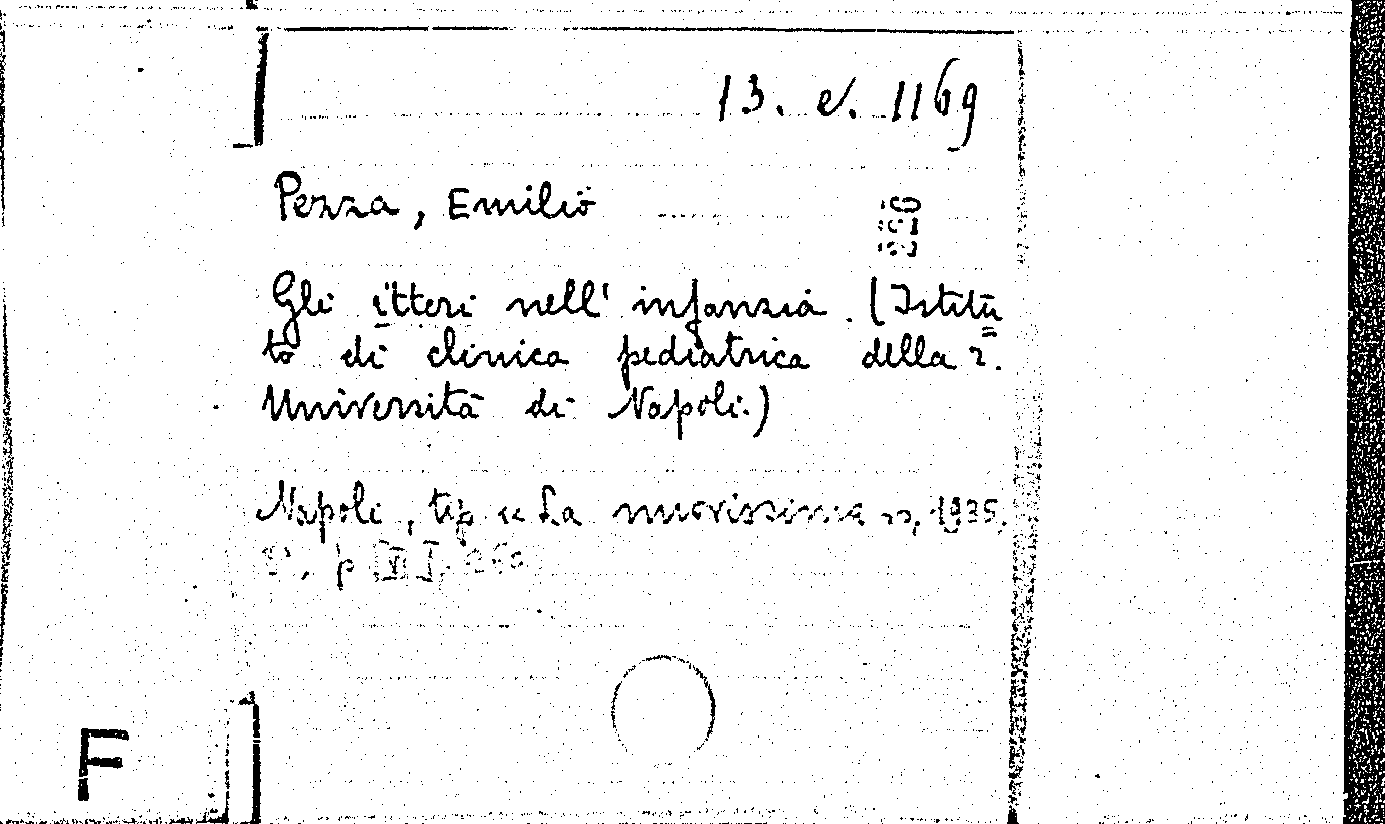 13. e. 1169
Pezza, Emilio
226
Gli itteri nell' infanzia. (Istitu=
to di clinica pediatrica della r.
Università di Napoli.)
Napoli, tip. « La nuovissima », 1935.
8°, p. [VI],
F